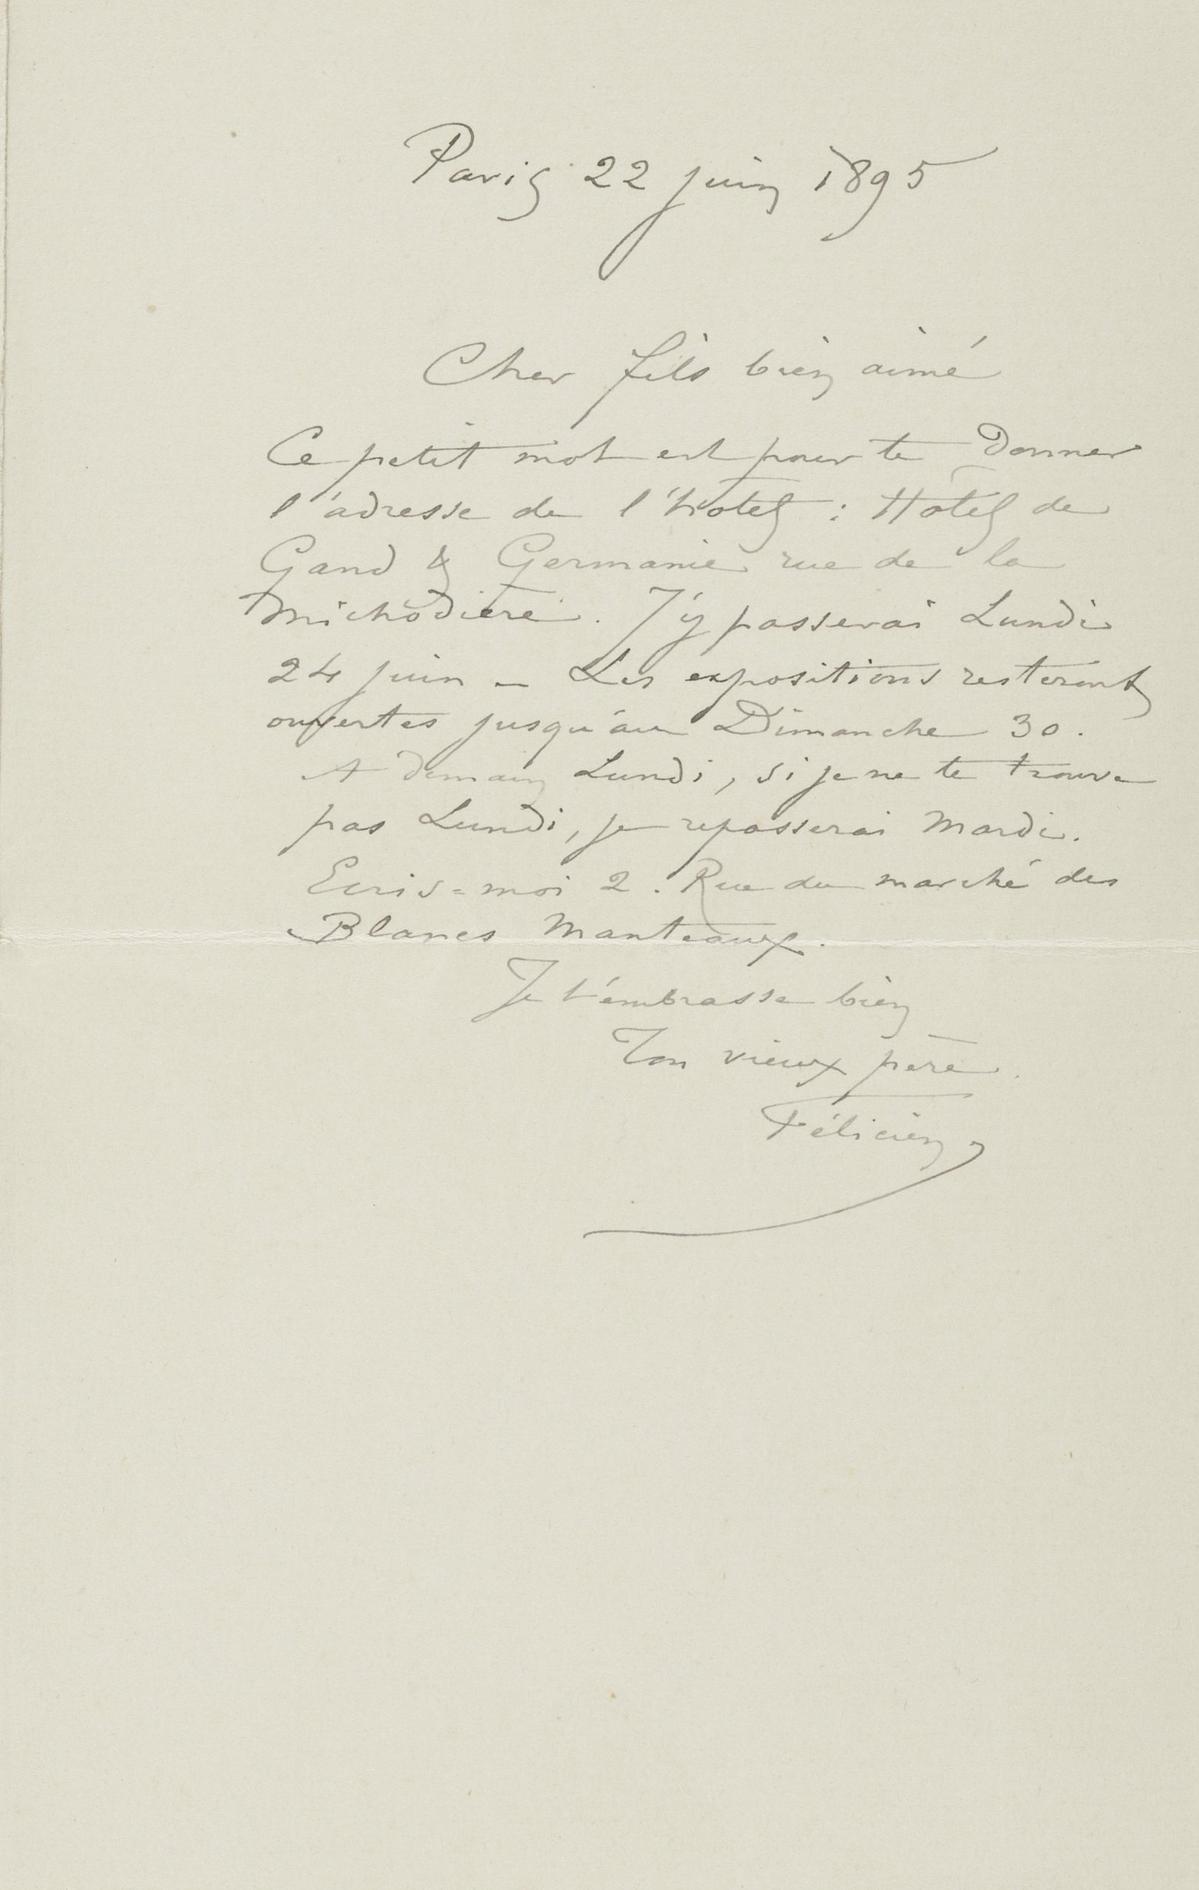 Paris 22 juin 1895
Cher fils bien aimé
Ce petit mot est pour te Donner
l'adresse de l'hotel : Hôtel de
Gand & Germanie rue de la
Michodière. J'y passerai Lundi
24 juin _ Les expositions resteront
ouvertes jusqu'au Dimanche 30.
A demain Lundi, si je ne te trouve
pas Lundi, je repasserai Mardi.
Ecris=moi 2. Rue du marché des
Blancs Manteaux.
Je t'embrasse bien
Ton vieux père.
Félicien